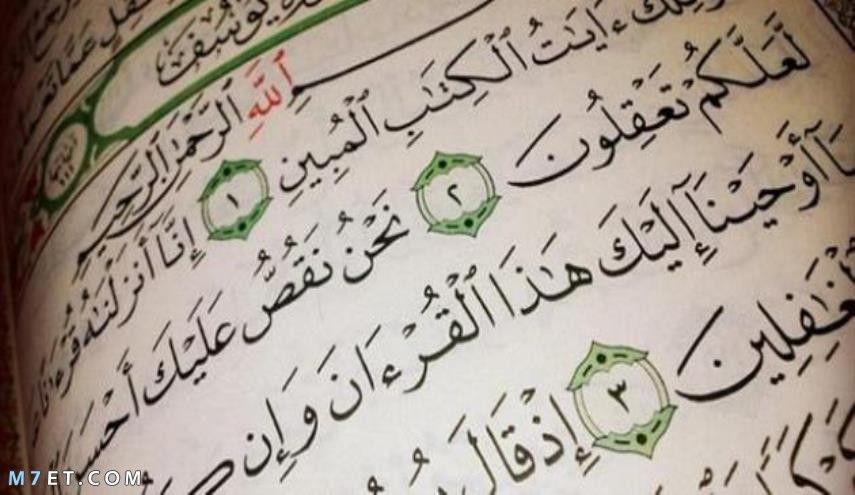 يوسف
بسم الله الرحمن الرحيم
ءَايَٰتُ ٱلْكِتَٰبِ ٱلْمُبِينِ ١ إِنَّآ أَنزَلْنَٰهُ قُرْءَٰنًا
لَّعَلَّكُمْ تَعْقِلُونَ ٢ نَحْنُ نَقُصُّ عَلَيْكَ أَحْسَنَ
أَوْحَيْنَآ إِلَيْكَ هَٰذَا ٱلْقُرْءَانَ وَإِن
ٱلْغَٰفِلِينَ ٣ إِذْ قَالَ
M7ET.COM